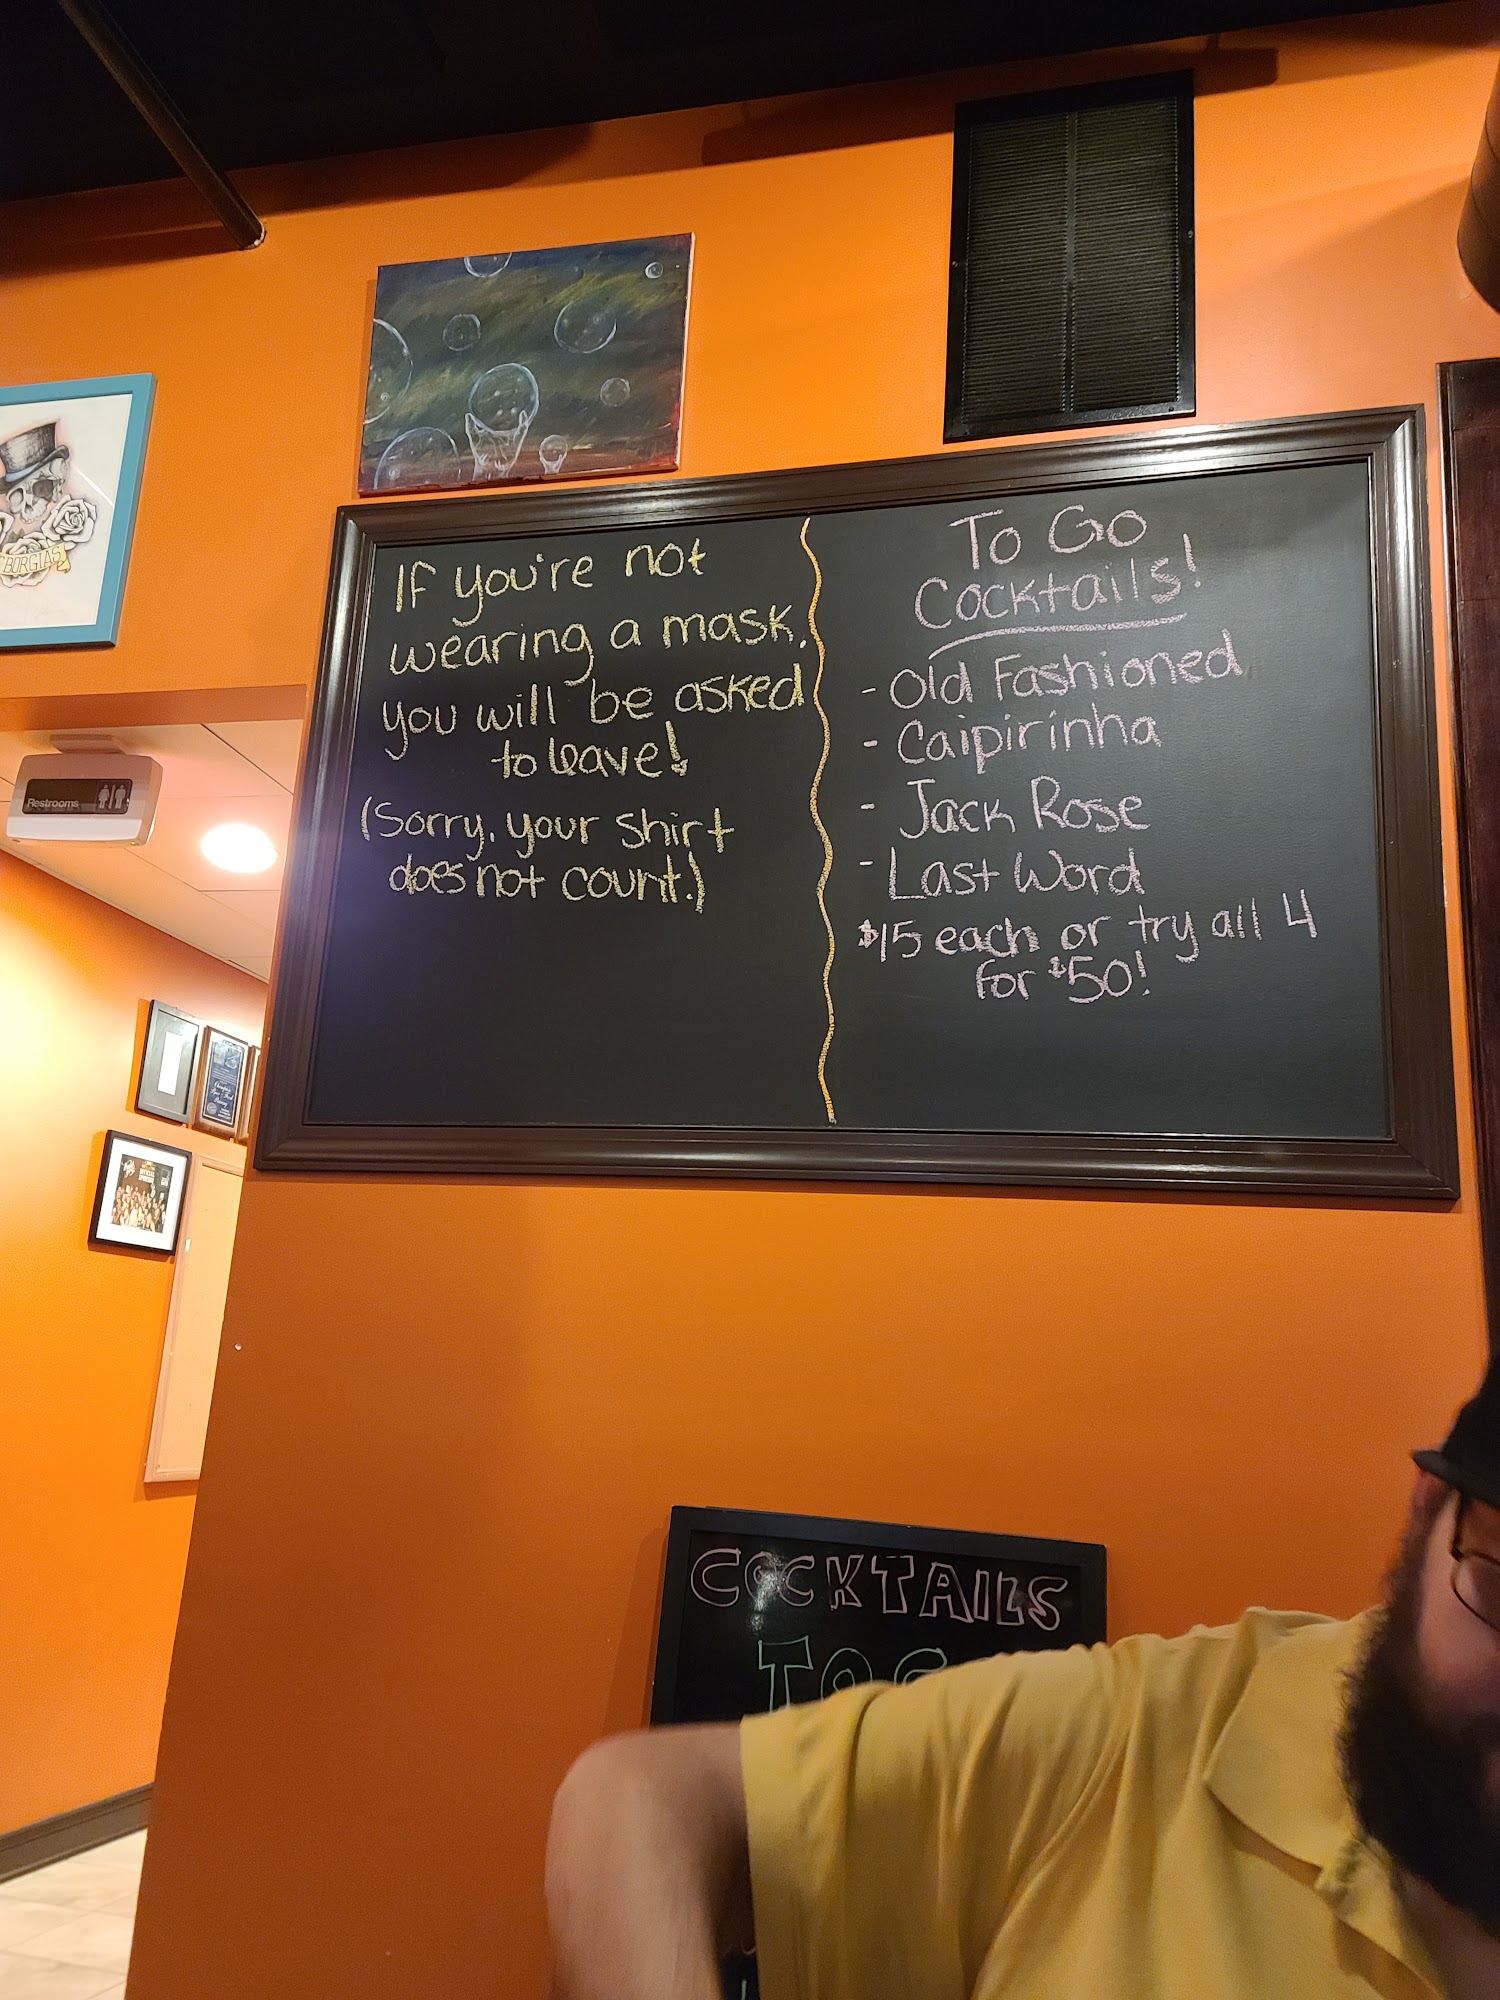 If you're not
wearing a mask,
you will be asked
to leave!
(Sorry, your shirt
does not count.)
To Go
Cocktails!
- Old Fashioned
- Caipirinha
- Jack Rose
- Last Word
$15 each or try all 4
for $50!
BORGIAS
Restrooms
COCKTAILS
TO G